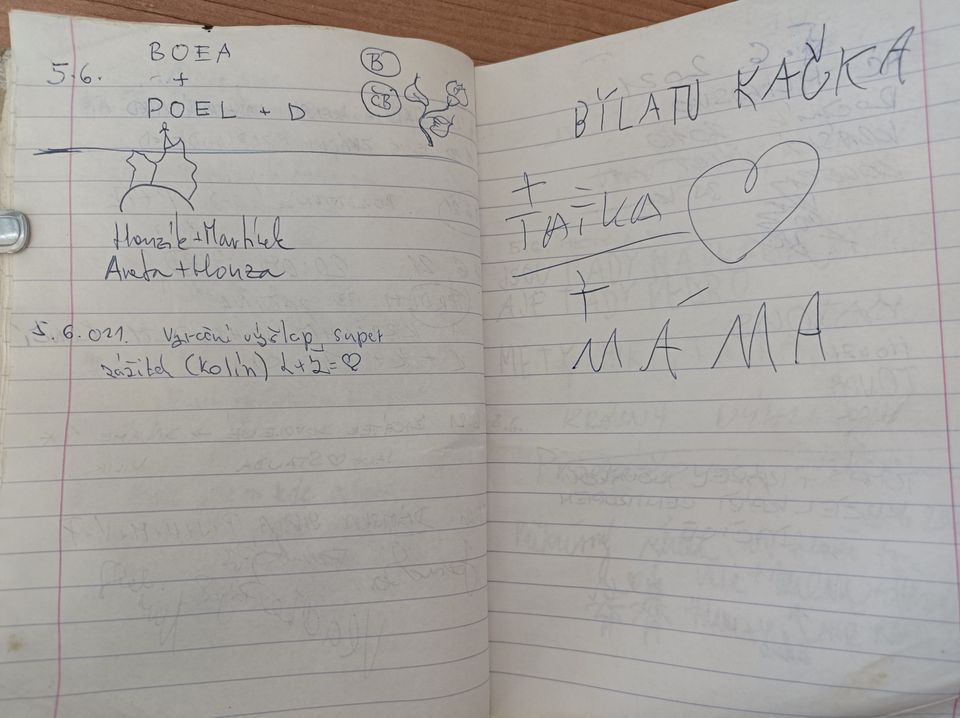 5.6.
BOEA
+
POEL + D
B
ČB
Honzík + Martínek
Aneta + Honza
5.6.021. Výroční výšlap, super
zážitek (Kolín) L+Z=♡
BÝLATU KAČKA
+
TAŤKA
+
MÁMA